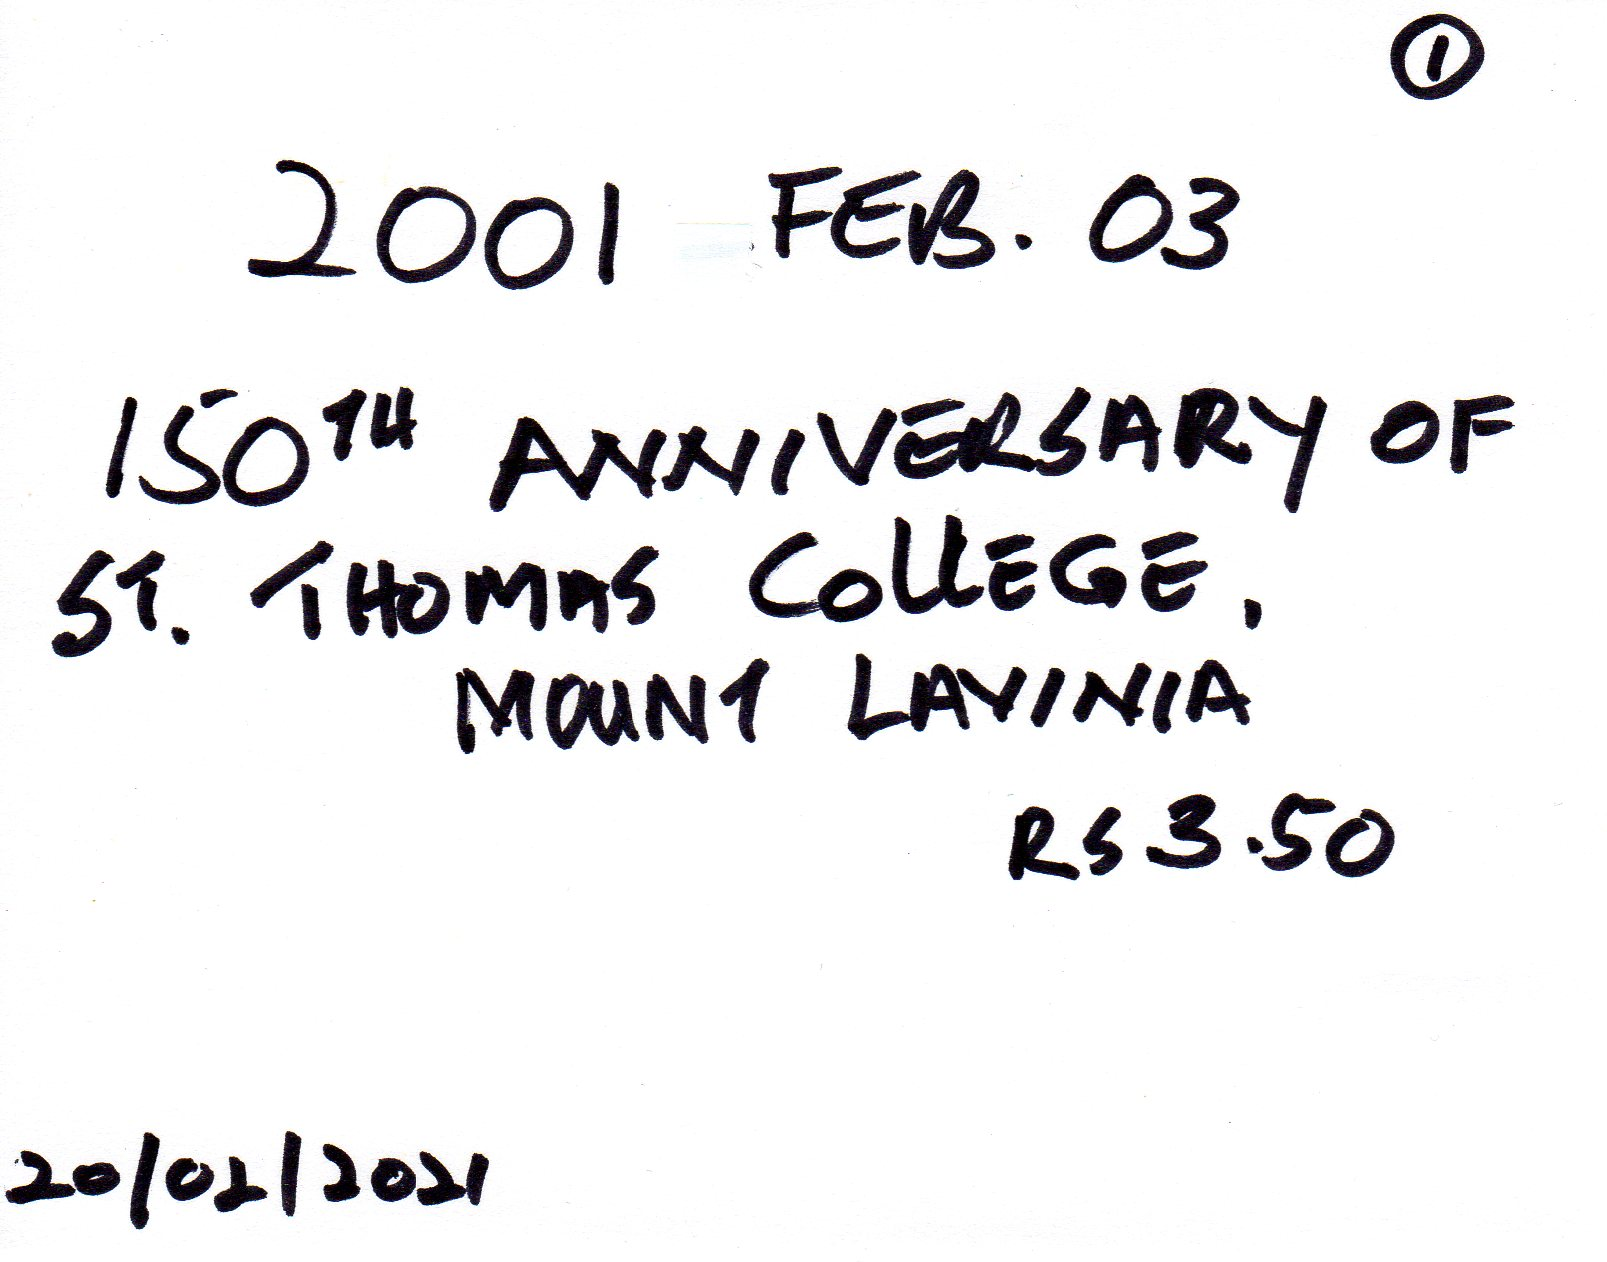 ①
2001 FEB. 03
150TH ANNIVERSARY OF
ST. THOMAS COLLEGE,
MOUNT LAVINIA
RS 3.50
20/02/2021